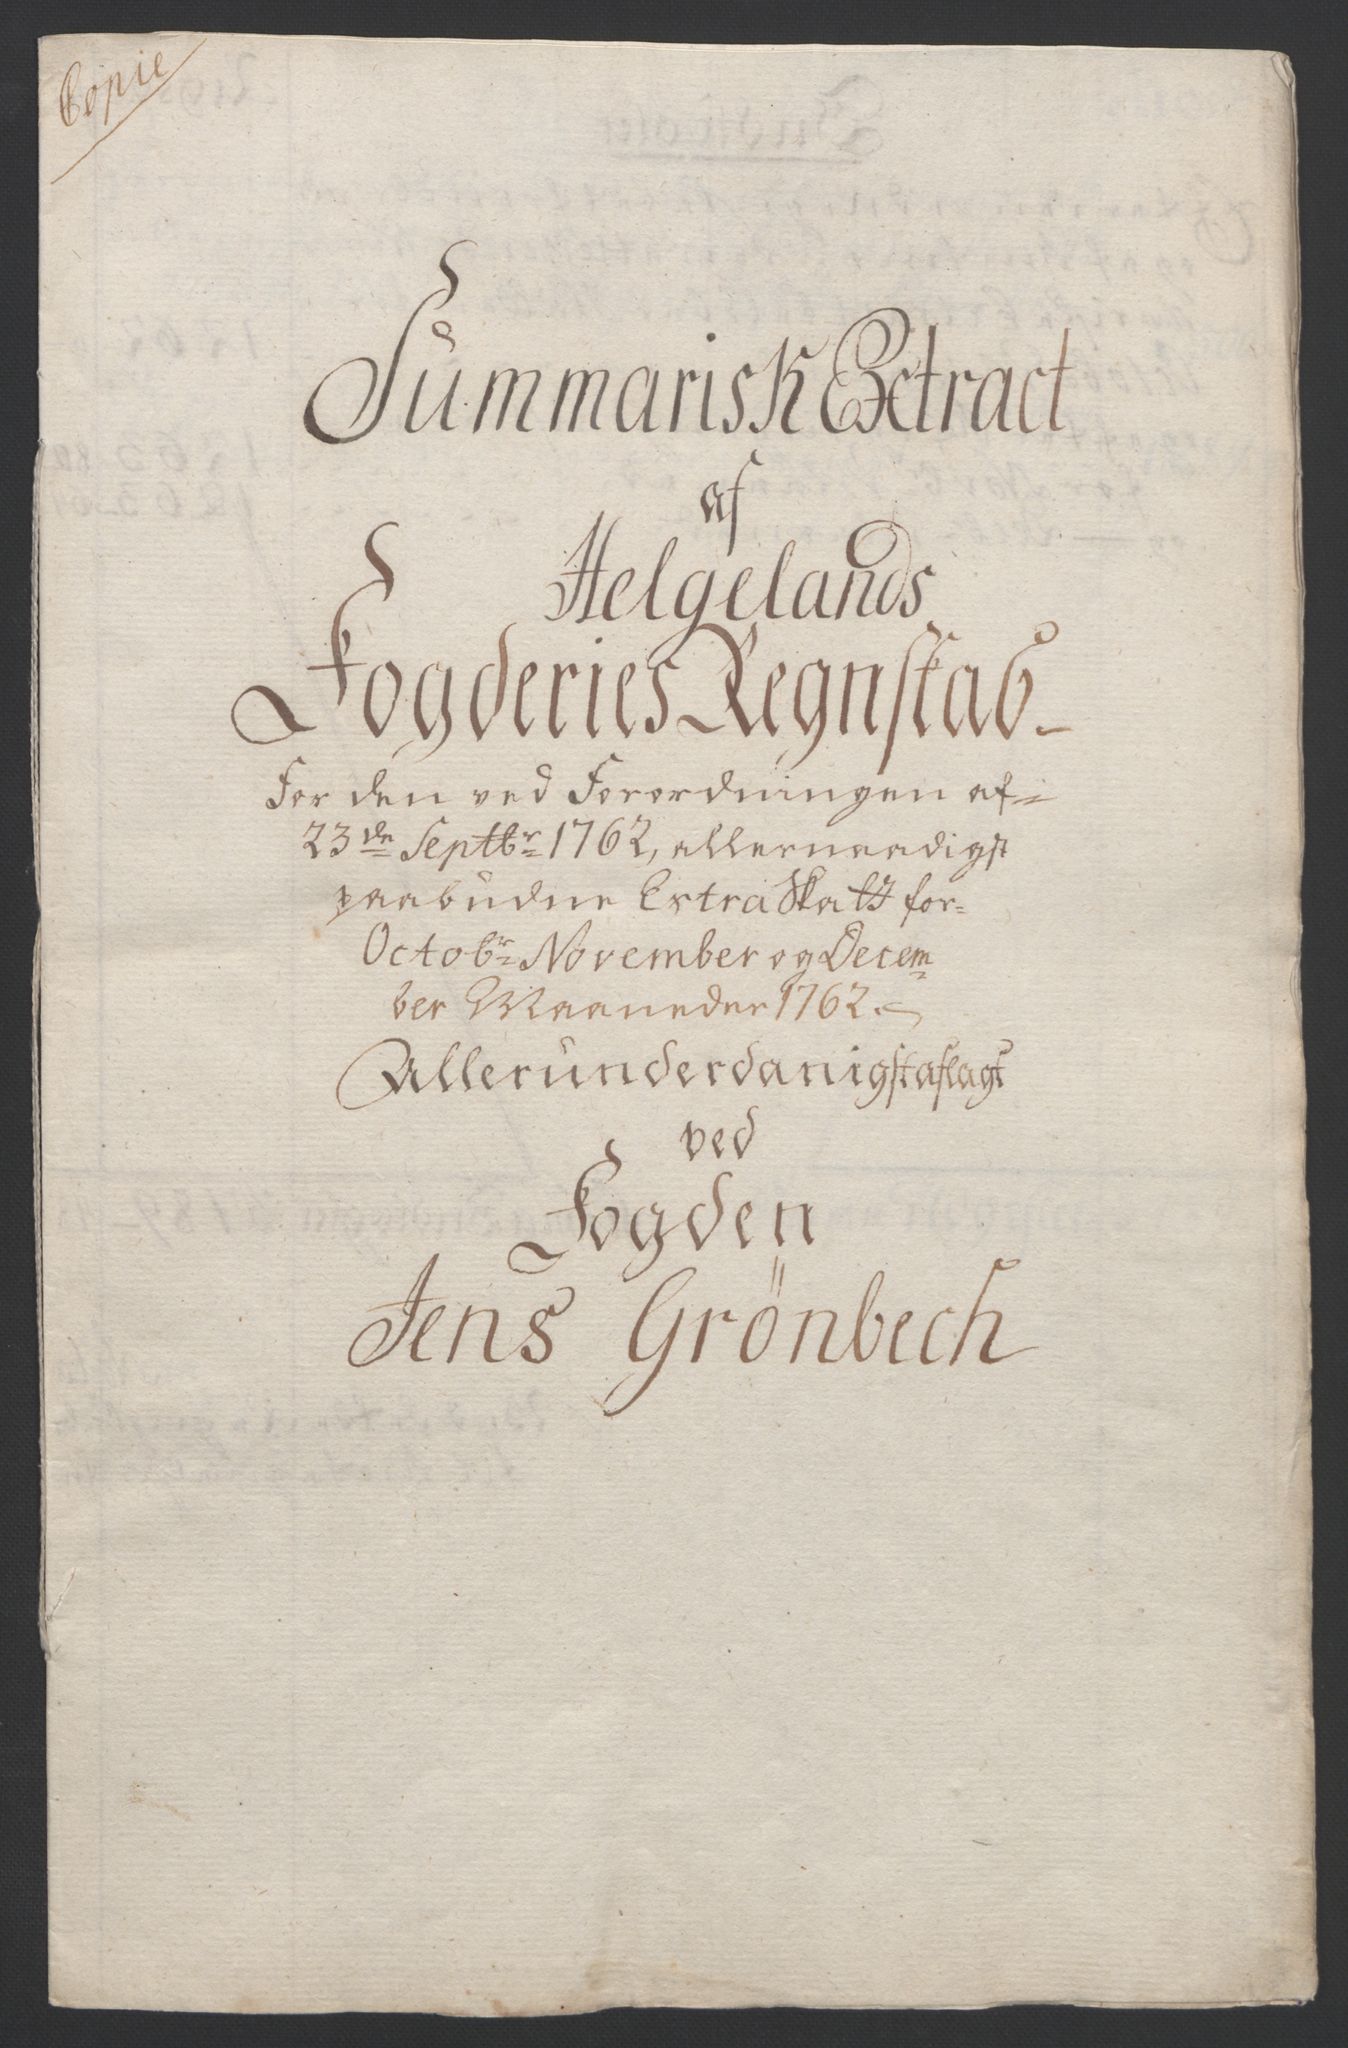 Copie
Summarisk Extract
af
Helgelands
Fogderies Regnskab
For den ved Forordningen af
23de Septbr 1762, allernaadigst
paabudne Extra Skatt for
Octobr November og Decem
ber Maaneder 1762.
Allerunderdanigst aflagt
ved
Fogden
Jens Grönbech